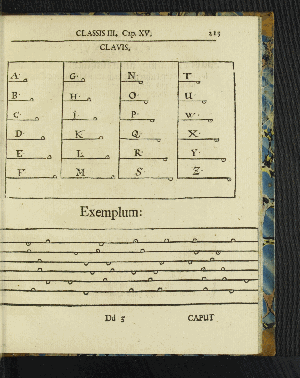 CLASSIS III. Cap. XV. 213
CLAVIS.
A. G. N. T
B. H. O. U
C. I. P. W.
D. K. Q. X.
E L. R. Y.
F M S Z.
Exemplum:
Dd 5 CAPUT